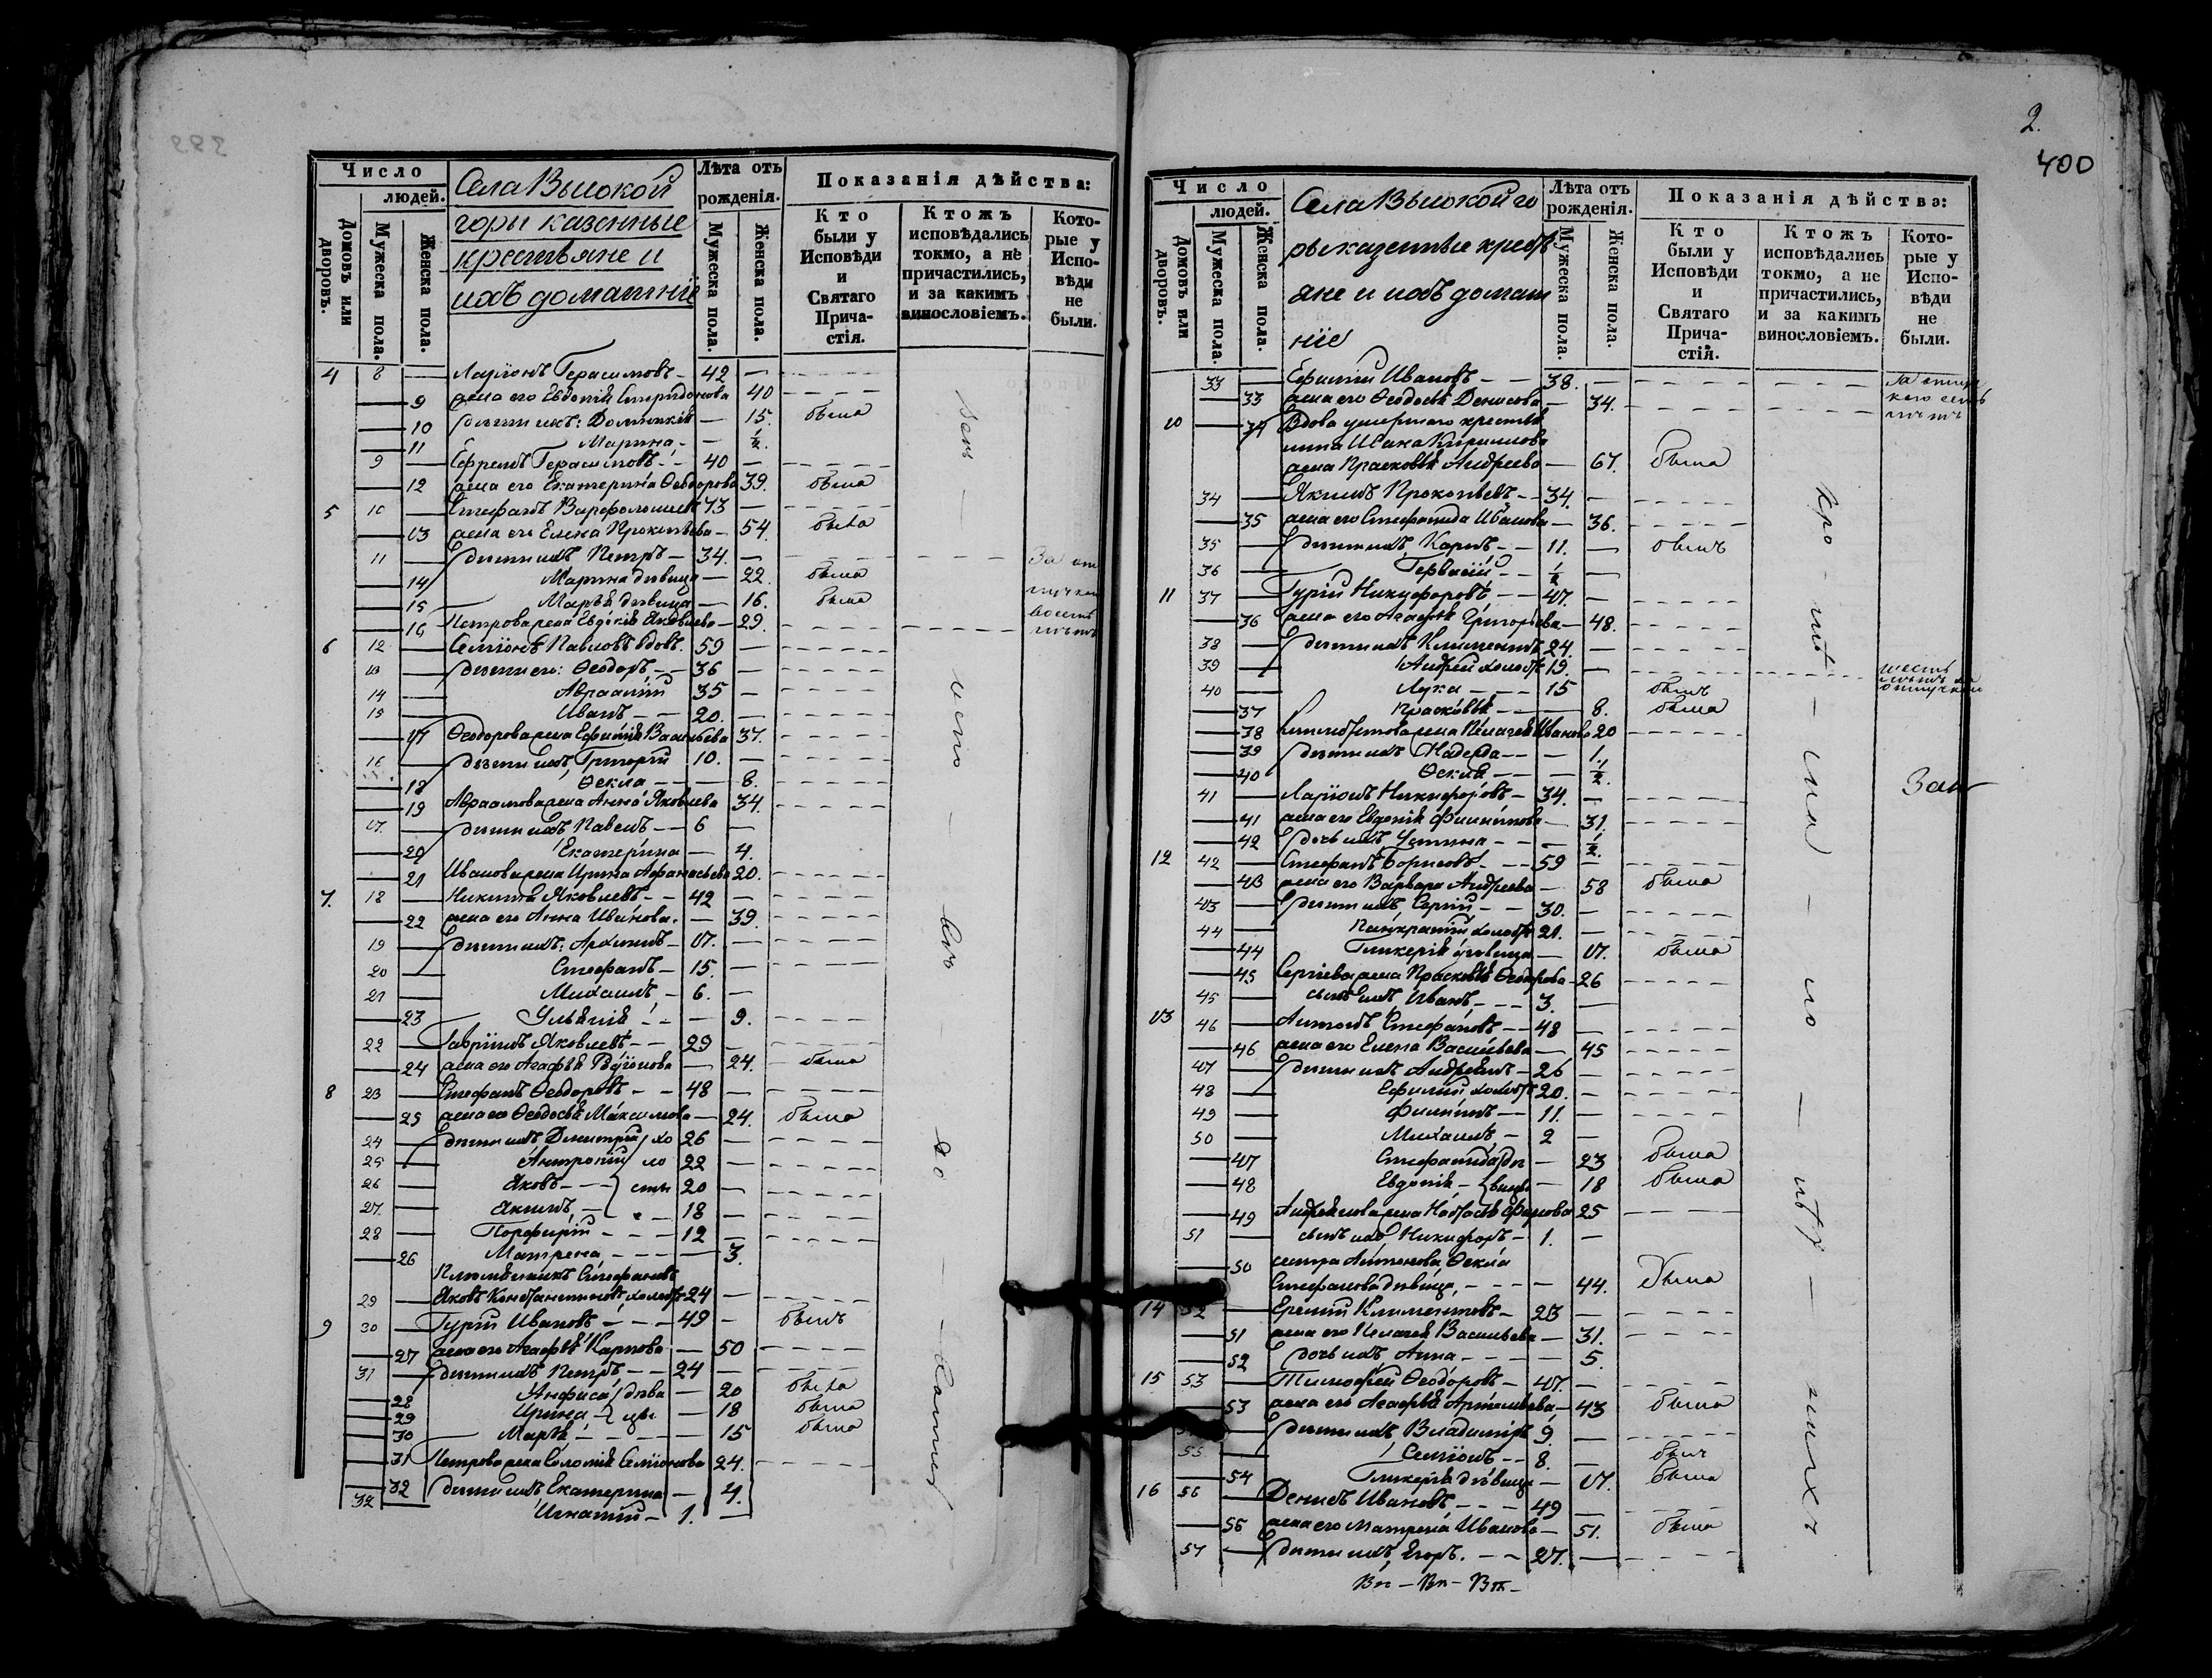 Число
людей.
Домовъ или дворовъ.
Мужеска пола.
Женска пола.
Села Высокой
горы казенные
крестьяне и
ихъ домашнiе
Лѣта отъ
рожденія.
Мужеска пола.
Женска пола.
Показанія дѣйства:
Кто
были у
Исповѣди
и
Святаго
Прича-
стія.
Ктожъ
исповѣдались
токмо, а не
причастились,
и за какимъ
винословіемъ.
Кото-
рые у
Испо-
вѣди
не
были.
4 8 Ларіонъ Герасимовъ 42
9 жена его Евдокія Спиридонова 40
10 дѣти ихъ: Домникія 15. была
11 Марина ½.
9 Ефремъ Герасимовъ 40
12 жена его Екатерина Ѳеодорова 39. была
5 10 Стефанъ Варфоломеевъ 73
13 жена его Елена Прокопьева 54. была
11 дѣти ихъ Петръ 34. За от
14 Марина дѣвица 22. была
15 Марья дѣвица 16. была
16 Петрова жена Евдокія Яковлева 29.
6 12 Семіонъ Павловъ вдовъ. 59
13 дѣти его: Ѳеодоръ 36
14 Авраамій 35
15 Иванъ 20.
17 Ѳеодорова жена Ефимія Васильева 37.
16 дѣти ихъ Григорій 10.
18 Ѳекла 8.
19 Авраамова жена Анна Яковлева 34.
17. дѣти ихъ Павелъ 6
20 Екатерина 4.
21 Иванова жена Ирина Афанасьева 20.
7. 18 Никита Яковлевъ 42
22 жена его Анна Иванова. 39.
19 дѣти ихъ: Архипъ 17.
20 Стефанъ 15.
21 Михаилъ 6.
23 Ульянія 9.
22 Гавріилъ Яковлевъ 29
24 жена его Агафья Родіонова 24. была
8 23 Стефанъ Ѳеодоровъ 48
25 жена его Ѳеодосья Максимова 24. была
24 дѣти ихъ Димитрій хо 26
25 Антропій ло 22
26 Яковъ сты 20
27. Акимъ 18
28 Порфирій 12
26 Матрена 3.
Племянникъ Стефановъ
29 Яковъ Константиновъ холостъ 24
9 30 Гурій Ивановъ 49 былъ
27 жена его Агафья Карпова 50
31 дѣти ихъ Петръ 24
28 Анфиса дѣви 20 была
29 Ирина цы 18 была
30 Марья 15 была
31 Петрова жена Соломія Семіонова 24.
32 дѣти ихъ Екатерина 4.
32 Игнатій 1.
2.
400
Число
людей.
Домовъ или дворовъ.
Мужеска пола.
Женска пола.
Села Высокой го
ры казенные кресть
яне и ихъ домаш
нiе
Лѣта отъ
рожденія.
Мужеска пола.
Женска пола.
Показанія дѣйства:
Кто
были у
Исповѣди
и
Святаго
Прича-
стія.
Ктожъ
исповѣдались
токмо, а не
причастились,
и за какимъ
винословіемъ.
Кото-
рые у
Испо-
вѣди
не
были.
33 Ефимій Ивановъ 38.
33 жена его Ѳеодосья Денисова 34.
10 34 Вдова умершаго крестья
нина Ивана Кириллова
жена Прасковья Андреева 67. была
34 Якимъ Прокопьевъ 34.
35 жена его Стефанида Иванова 36.
35 дѣти ихъ Карпъ 11. былъ
36 Гервасій ½
11 37 Гурій Никифоровъ 47.
36 жена его Агафья Григорьева 48.
38 дѣти ихъ Климентъ 24.
39 Андрей холостъ 19.
40 Лука 15 былъ
37 Прасковья 8. была
38 Климентова жена Пелагея Иванова 20
39 дѣти ихъ Надежда 1.
40 Ѳекла ½.
41 Ларіонъ Никифоровъ 34.
41 жена его Евдокія Филиппова 31.
42 дочь ихъ Устинья ½.
12 42 Стефанъ Борисовъ 59
43 жена его Варвара Андреева 58 была
43 дѣти ихъ Сергій 30.
44 Панкратій холостъ 21.
44 Гликерія дѣвица 17. была
45 Сергіева жена Прасковья Ѳеодорова 26
45 сынъ ихъ Иванъ 3.
13 46 Антонъ Стефановъ 48
46 жена его Елена Васильева 45
47 дѣти ихъ Андреянъ 26
48 Ефимій холостъ 20.
49 Филиппъ 11.
50 Михаилъ 2
47 Стефанида дѣ 23 была
48 Евдокія вицы 18 была
49 Андреянова жена Настасья Фирсова 25
51 сынъ ихъ Никифоръ 1.
50 сестра Антонова Ѳекла
Стефанова дѣвица 44. была
14 52 Еремій Климентовъ 23
51 жена его Пелагея Васильева 31.
52 дочь ихъ Анна 5.
15 53 Тимофей Ѳеодоровъ 47.
53 жена его Агафья Артемьева 43 была
дѣти ихъ Владиміръ 9.
55 Семіонъ 8. былъ
54 Гликерія дѣвица 17. была
16 56 Денисъ Ивановъ 49
55 жена его Матрена Иванова 51. была
57 дѣти ихъ Егоръ. 27.